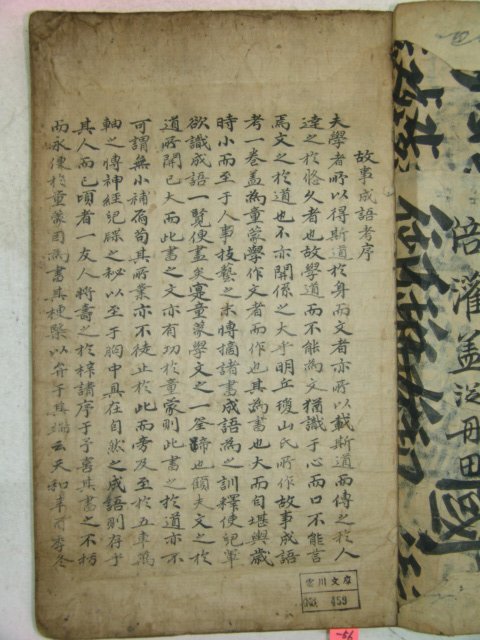 故事成語考序
夫學者所以得斯道於身而文者亦所以載斯道而傳之於人
達之於悠久者也故學道而不能為文猶識于心而口不能言
焉文之於道也不亦關係之大乎明丘瓊山氏所作故事成語
考一卷盖為童蒙學作文者而作也其為書也大而自堪輿歲
時小而至于人事技藝之末博摘諸書成語為之訓釋使記單
欲識成語一覽便盡矣寔童蒙學文之一筌蹄也顧夫文之於
道所開已大而此書之文亦有功於童蒙則此書之於道亦不
可謂無小補焉苟其所業亦不徒止於此而旁及至於五車萬
軸之傳神經紀牒之秘以至于胸中具在自然之成語則存于
其人而已頃者一友人將壽之於梓請序于予喜其書之不朽
而永便於童蒙因為書其梗槩以弁于其端云天和辛酉季冬
文庫
459
-56